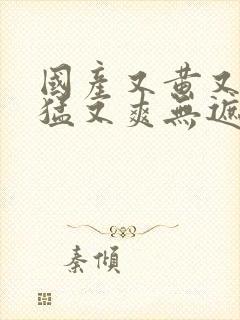 國產又黄又
猛又爽無遮
秦傾